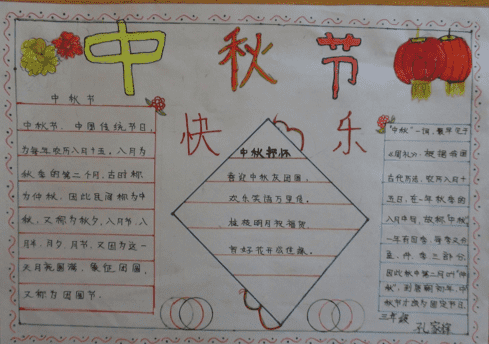 中秋节
快乐
中秋节
中秋节,中国传统节日,
为每年农历八月十五。八月为
秋季的第二个月,古时称
为仲秋,因此民间称为中
秋,又称为秋夕、八月节、八
月半,月夕,月节,又因为这一
天月亮圆满,象征团圆,
又称为团圆节。
中秋抒怀
喜迎中秋友团圆,
欢乐笑语万里传,
桂枝明月祝福
花开
"中秋"一词,最早见于
《周礼》。根据我国
古代历法,农历八月十
五日,在一年秋季的
八月中旬,故称"中秋"
一年有四季,每季又分
孟、仲、季三部分,
因此秋中第二月叫"仲
秋",到唐朝初年,中
秋节才成为固定节日。
三年级
孔家